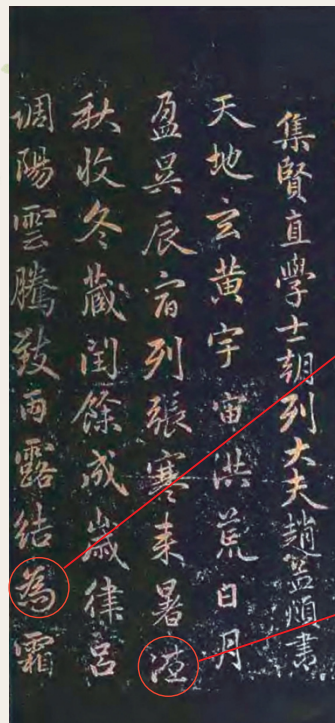 集賢直學士朝列大夫趙孟頫書
天地玄黃宇宙洪荒日月
盈昃辰宿列張寒来暑往
秋收冬藏閏餘成歲律呂
調陽雲騰致雨露結為霜